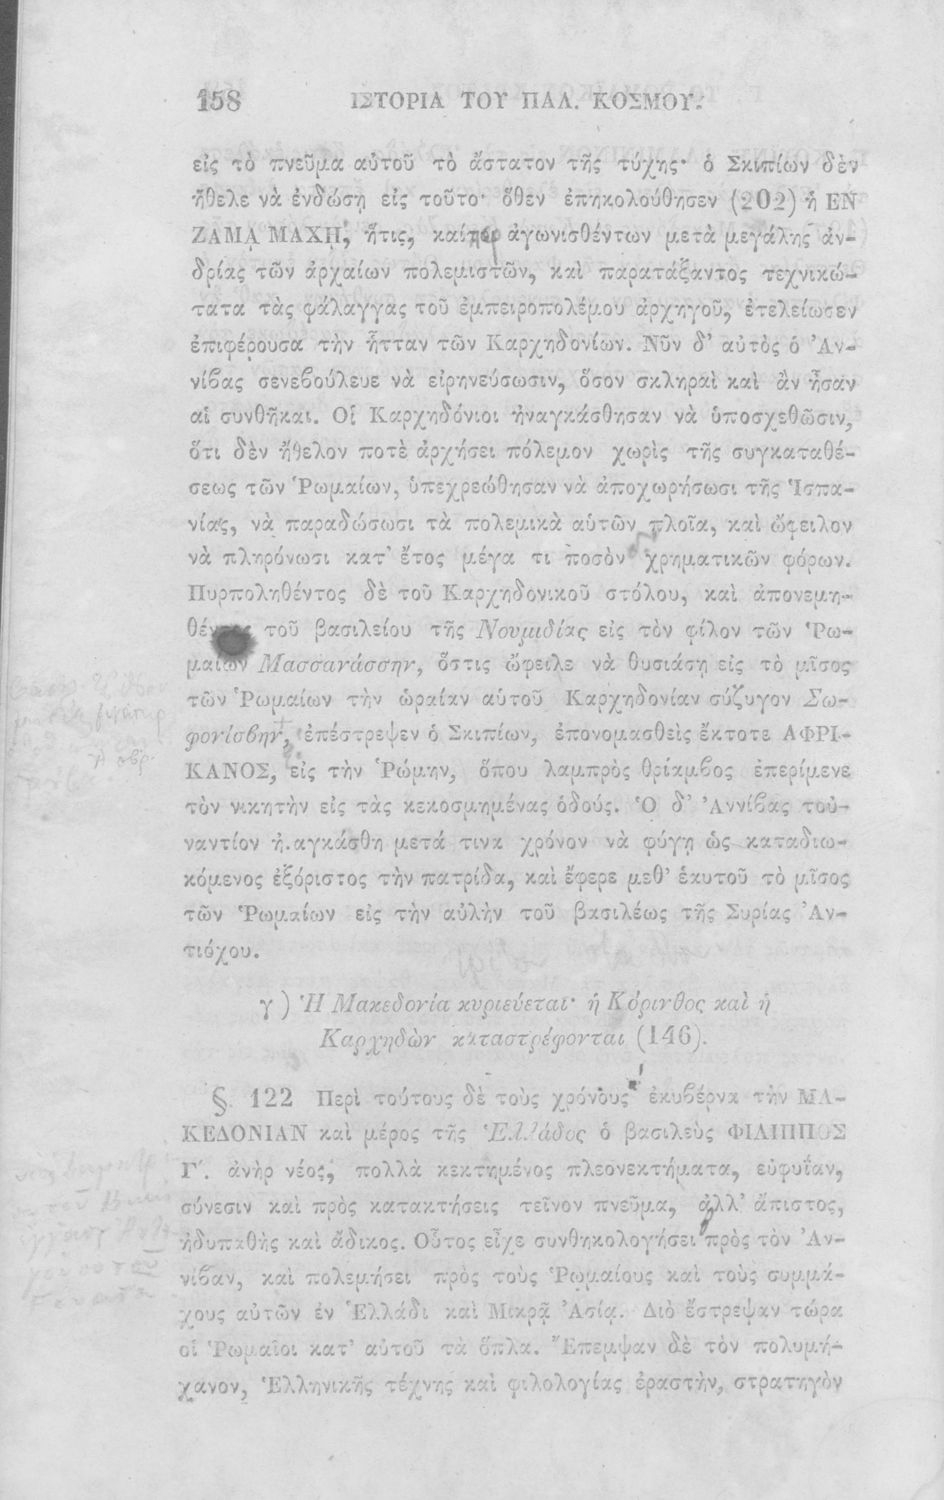 158 ΙΣΤΟΡΙΑ ΤΟΥ ΠΑΛ. ΚΟΣΜΟΥ.
εἰς τὸ πνεῦμα αὐτοῦ τὸ ἄστατον τῆς τύχης· ὁ Σκιπίων δὲν
ἤθελε νὰ ἐνδώσῃ εἰς τοῦτο· ὅθεν ἐπηκολούθησεν (202) ἡ ΕΝ
ΖΑΜᾼ ΜΑΧΗ, ἥτις, καίπερ ἀγωνισθέντων μετὰ μεγάλης ἀν-
δρίας τῶν ἀρχαίων πολεμιστῶν, καὶ παρατάξαντος τεχνικώ-
τατα τὰς φάλαγγας τοῦ ἐμπειροπολέμου ἀρχηγοῦ, ἐτελείωσεν
ἐπιφέρουσα τὴν ἧτταν τῶν Καρχηδονίων. Νῦν δ' αὐτὸς ὁ Ἀν-
νίβας συνεβούλευε νὰ εἰρηνεύσωσιν, ὅσον σκληραὶ καὶ ἂν ἦσαν
αἱ συνθῆκαι. Οἱ Καρχηδόνιοι ἠναγκάσθησαν νὰ ὑποσχεθῶσιν,
ὅτι δὲν ἤθελον ποτὲ ἀρχήσει πόλεμον χωρὶς τῆς συγκαταθέ-
σεως τῶν Ῥωμαίων, ὑπεχρεώθησαν νὰ ἀποχωρήσωσι τῆς Ἱσπα-
νίας, νὰ παραδώσωσι τὰ πολεμικὰ αὑτῶν πλοῖα, καὶ ὤφειλον
νὰ πληρόνωσι κατ' ἔτος μέγα τι ποσὸν χρηματικῶν φόρων.
Πυρποληθέντος δὲ τοῦ Καρχηδονικοῦ στόλου, καὶ ἀπονεμη-
τοῦ βασιλείου τῆς Νουμιδίας εἰς τὸν φίλον τῶν Ῥω-
μαίων Μασσανάσσην, ὅστις ὤφειλε νὰ θυσιάσῃ εἰς τὸ μῖσος
τῶν Ῥωμαίων τὴν ὡραίαν αὑτοῦ Καρχηδονίαν σύζυγον Σω-
φονίσβην, ἐπέστρεψεν ὁ Σκιπίων, ἐπονομασθεὶς ἔκτοτε ΑΦΡΙ-
ΚΑΝΟΣ, εἰς τὴν Ῥώμην, ὅπου λαμπρὸς θρίαμβος ἐπερίμενε
τὸν νικητὴν εἰς τὰς κεκοσμημένας ὁδούς. Ὁ δ' Ἀννίβας τοὐ-
ναντίον ἠναγκάσθη μετά τινα χρόνον νὰ φύγῃ ὡς καταδιω-
κόμενος ἐξόριστος τὴν πατρίδα, καὶ ἔφερε μεθ' ἑαυτοῦ τὸ μῖσος
τῶν Ῥωμαίων εἰς τὴν αὐλὴν τοῦ βασιλέως τῆς Συρίας Ἀν-
τιόχου.
γ ) Ἡ Μακεδονία κυριεύεται· ἡ Κόρινθος καὶ ἡ
Καρχηδὼν καταστρέφονται (146).
§. 122 Περὶ τούτους δὲ τοὺς χρόνους ἐκυβέρνα τὴν ΜΑ-
ΚΕΔΟΝΙΑΝ καὶ μέρος τῆς Ἑλλάδος ὁ βασιλεὺς ΦΙΛΙΠΠΟΣ
Γ΄. ἀνὴρ νέος, πολλὰ κεκτημένος πλεονεκτήματα, εὐφυΐαν,
σύνεσιν καὶ πρὸς κατακτήσεις τεῖνον πνεῦμα, ἀλλ' ἄπιστος,
ἡδυπαθὴς καὶ ἄδικος. Οὗτος εἶχε συνθηκολογήσει πρὸς τὸν Ἀν-
νίβαν, καὶ πολεμήσει πρὸς τοὺς Ῥωμαίους καὶ τοὺς συμμά-
χους αὐτῶν ἐν Ἑλλάδι καὶ Μικρᾷ Ἀσίᾳ. Διὸ ἔστρεψαν τώρα
οἱ Ῥωμαῖοι κατ' αὐτοῦ τὰ ὅπλα. Ἔπεμψαν δὲ τὸν πολυμή-
χανον, Ἑλληνικῆς τέχνης καὶ φιλολογίας ἐραστὴν, στρατηγὸν